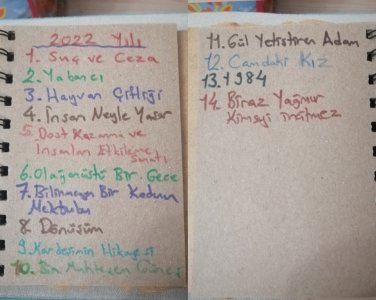 2022 Yılı
1. Suç ve Ceza
2. Yabancı
3. Hayvan Çiftliği
4. İnsan Neyle Yaşar
5. Dost Kazanma ve
İnsanları Etkileme
Sanatı
6. Olağanüstü Bir Gece
7. Bilinmeyen Bir Kadının
Mektubu
8. Dönüşüm
9. Kardeşimin Hikayesi
10. Bin Muhteşem Güneş
11. Gül Yetiştiren Adam
12. Camdaki Kız
13. 1984
14. Biraz Yağmur
Kimseyi incitmez